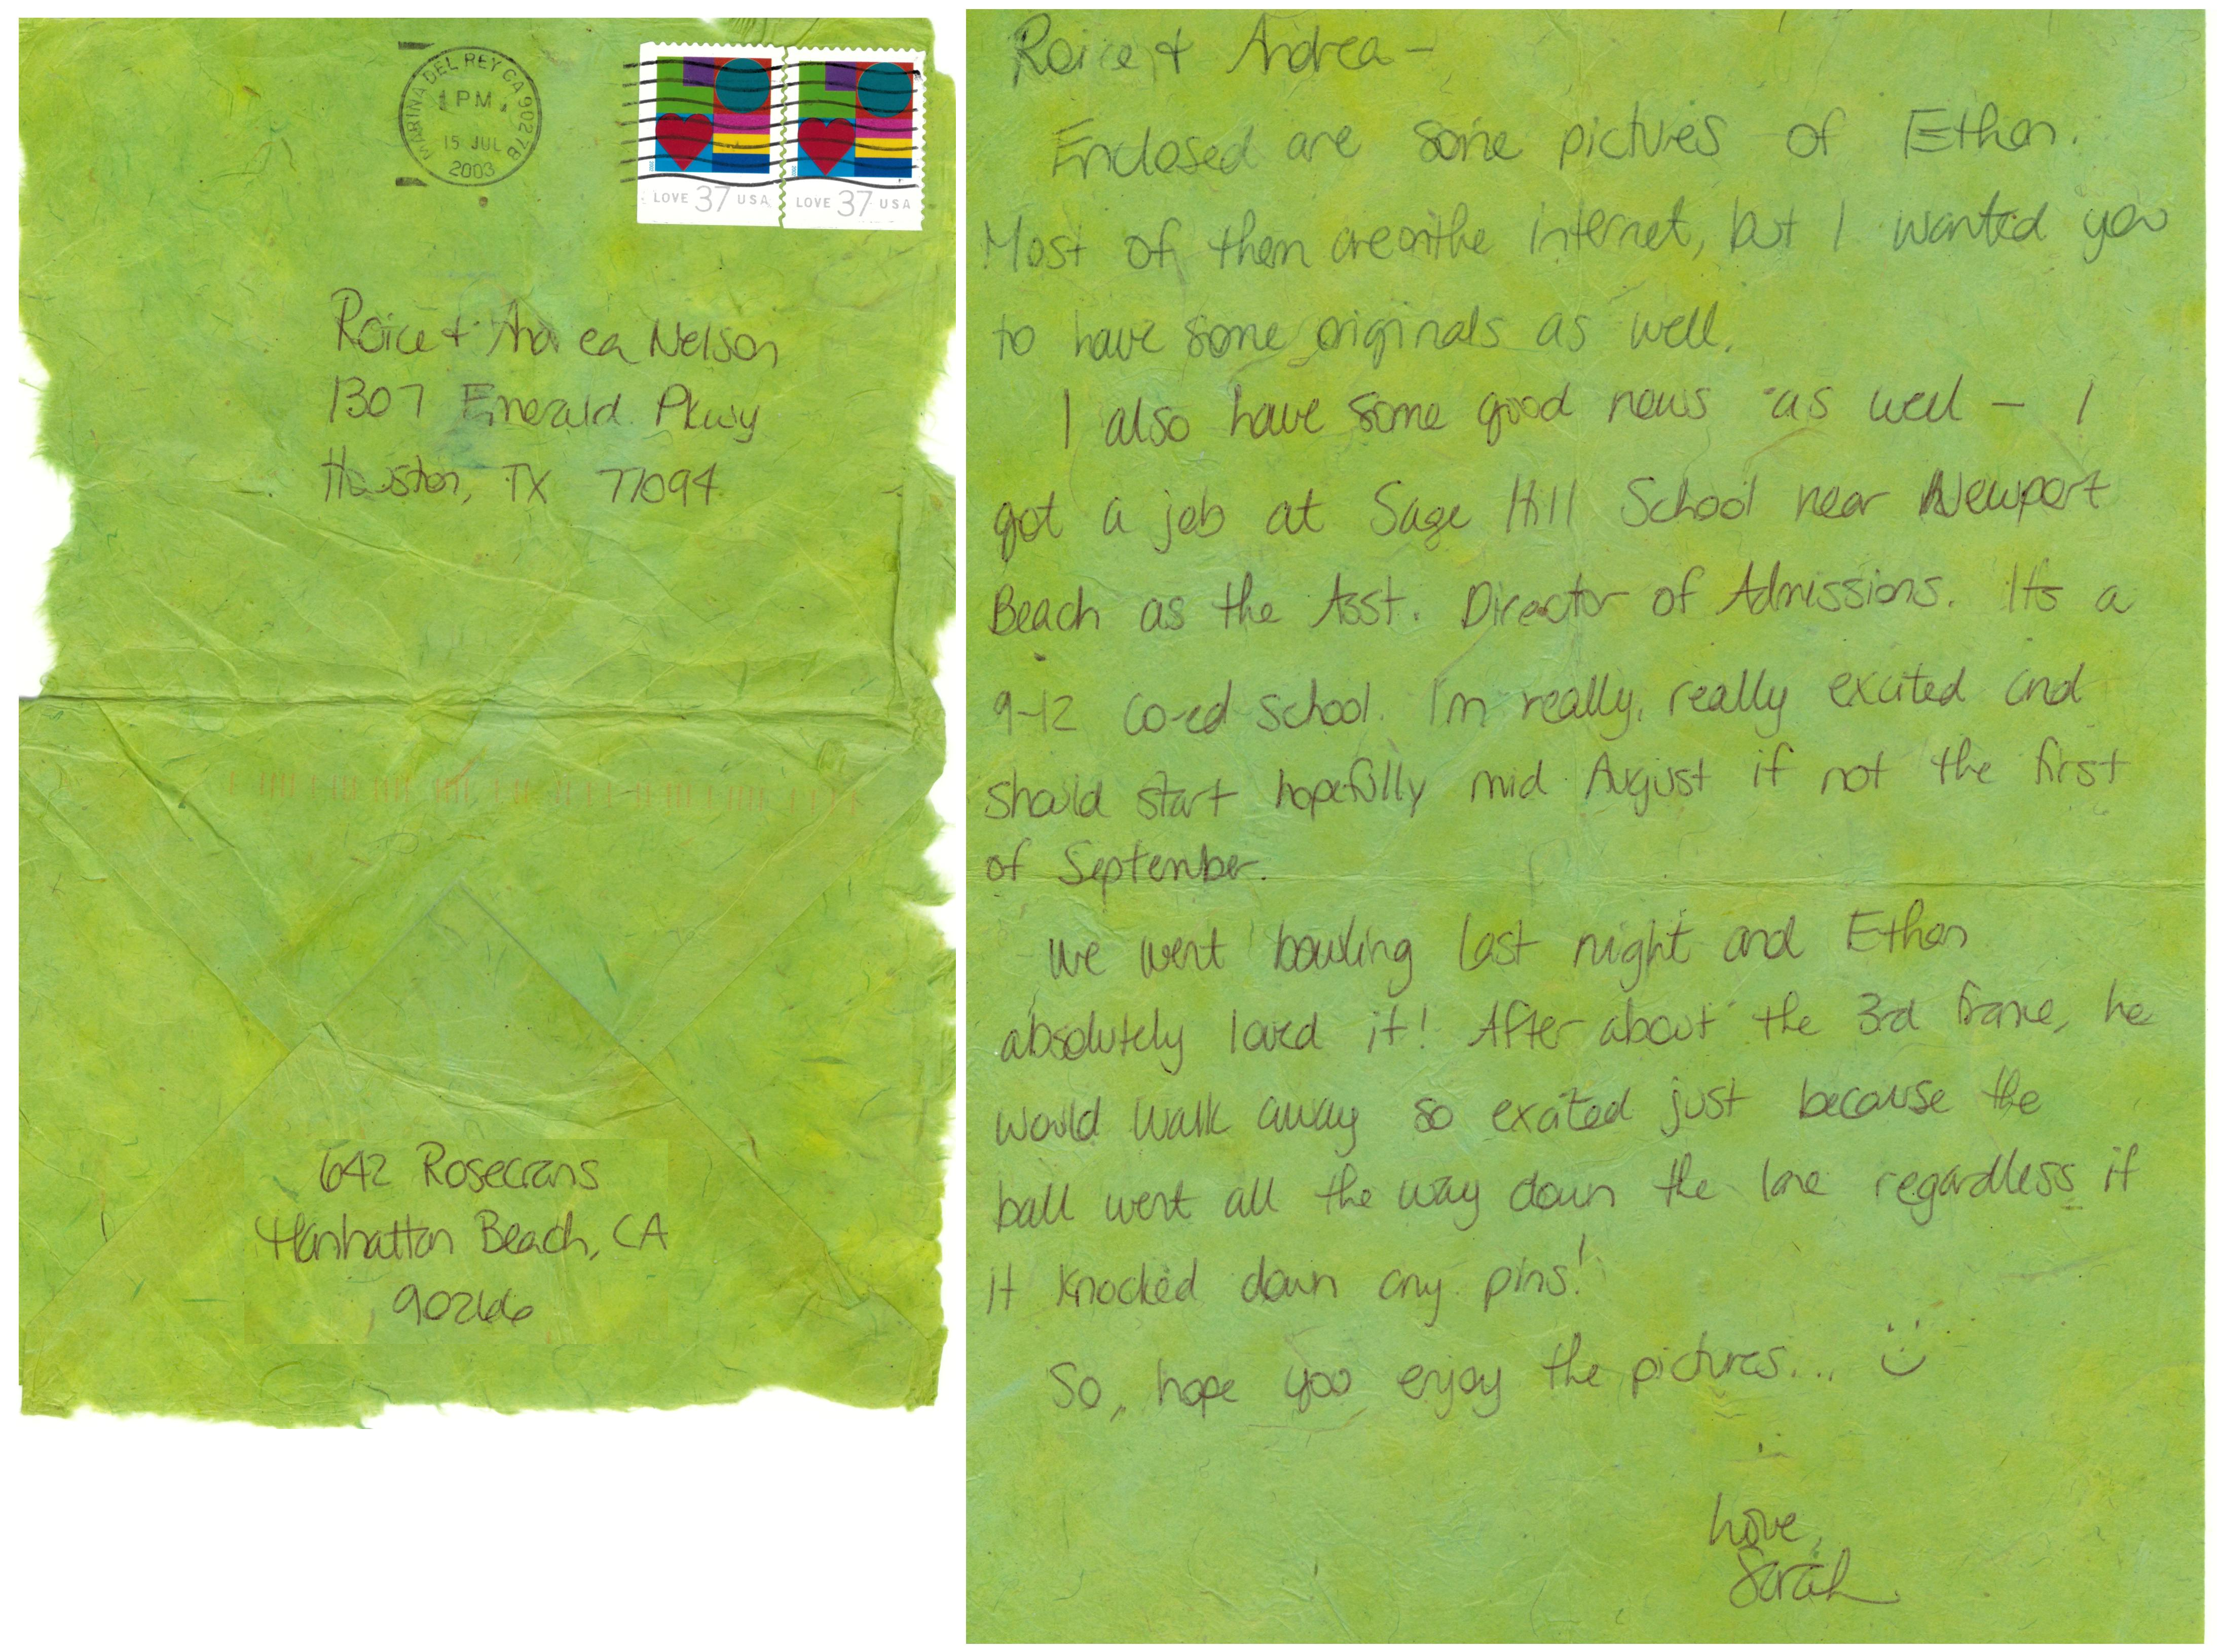 MARINA DEL REY CA 90278
PM
15 JUL
2003
LOVE 37 USA
LOVE 37 USA
Roice & Andrea Nelson
1307 Emerald Pkwy
Houston, TX 77094
642 Rosecrans
Manhattan Beach, CA
90266
Roice & Andrea –
Enclosed are some pictures of Ethan.
Most of them are on the internet, but I wanted you
to have some originals as well.
I also have some good news as well – I
got a job at Sage Hill School near Newport
Beach as the Asst. Director of Admissions. It's a
9-12 co-ed school. I'm really, really excited and
should start hopefully mid August if not the first
of September.
We went bowling last night and Ethan
absolutely loved it! After about the 3rd frame, he
would walk away so excited just because the
ball went all the way down the lane regardless if
it knocked down any pins!
So, hope you enjoy the pictures... :)
Love,
Sarah